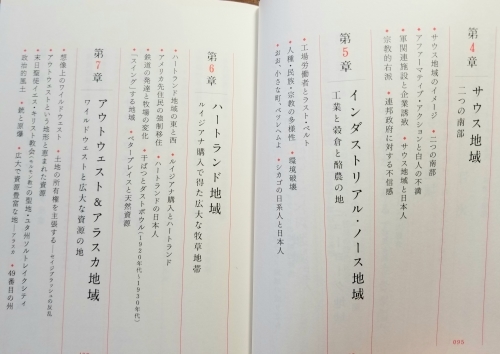 第4章 サウス地域
二つの南部
・サウス地域のイメージ ・二つの南部
・アファーマティヴ・アクションと白人の不満
・軍関連施設と企業誘致 ・サウス地域と日本人
・宗教的右派 ・連邦政府に対する不信感
第5章 インダストリアル・ノース地域
工業と穀倉と酪農の地
・工場労働者とラスト・ベルト ・環境破壊
・人種・民族・宗教の多様性 ・シカゴの日系人と日本人
・おお、小さな町ベツレヘムよ
第6章 ハートランド地域
ルイジアナ購入で得た広大な牧草地帯
・ハートランド地域の東と西 ・ルイジアナ購入とハートランド
・アメリカ先住民の強制移住 ・ハートランドの日本人
・鉄道の発達と牧場の変化 ・干ばつとダストボウル(1920年代〜1930年代)
・「スイング」する地域 ・ベタープレイスと天然資源
第7章 アウトウェスト&アラスカ地域
ワイルドウェストと広大な資源の地
・想像上のワイルドウェスト ・土地の所有権を主張する―セイジブラッシュの反乱
・アウトウェストという地形と恵まれた資源
・末日聖徒イエス・キリスト教会(モルモン教)の聖地・ユタ州ソルトレイクシティ
・政治的風土 ・銃と原爆 ・広大で資源豊富な地―アラスカ ・49番目の州